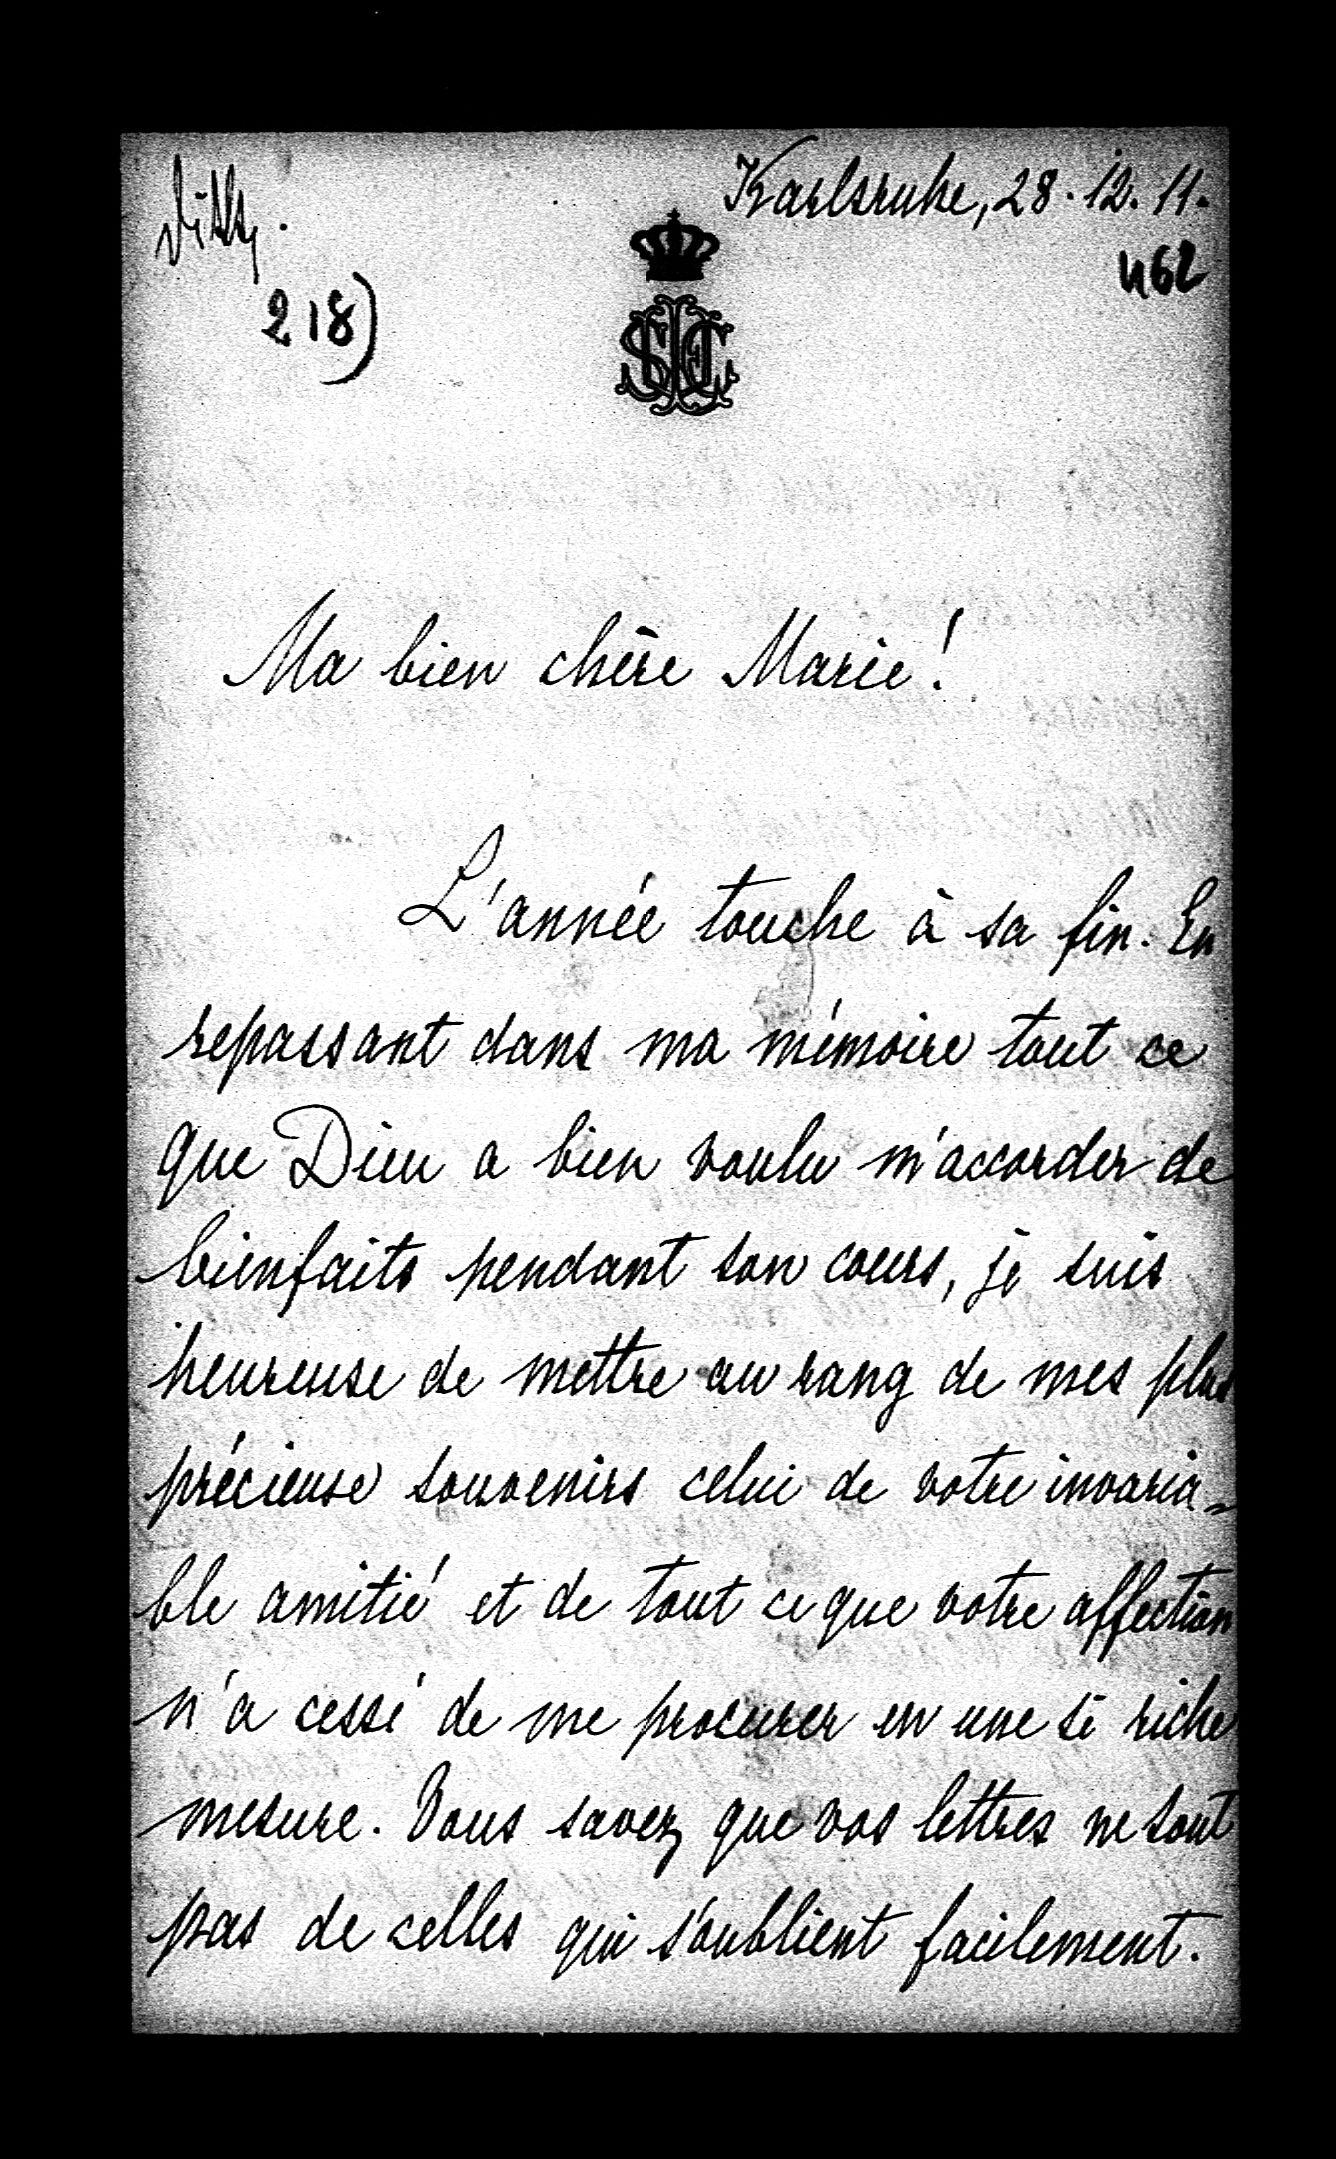 Karlsruhe, 28. 12. 11.
462
218)
Ma bien chère Marie!
L'année touche à sa fin. En
repassant dans ma mémoire tout ce
que Dieu a bien voulu m'accorder de
bienfaits pendant son cours, je suis
heureuse de mettre au rang de mes plus
précieuse souvenirs celui de votre invaria-
ble amitié et de tout ce que votre affection
n'a cessé de me procurer en une si riche
mesure. Vous savez que vos lettres ne sont
pas de celles qui s'oublient facilement.